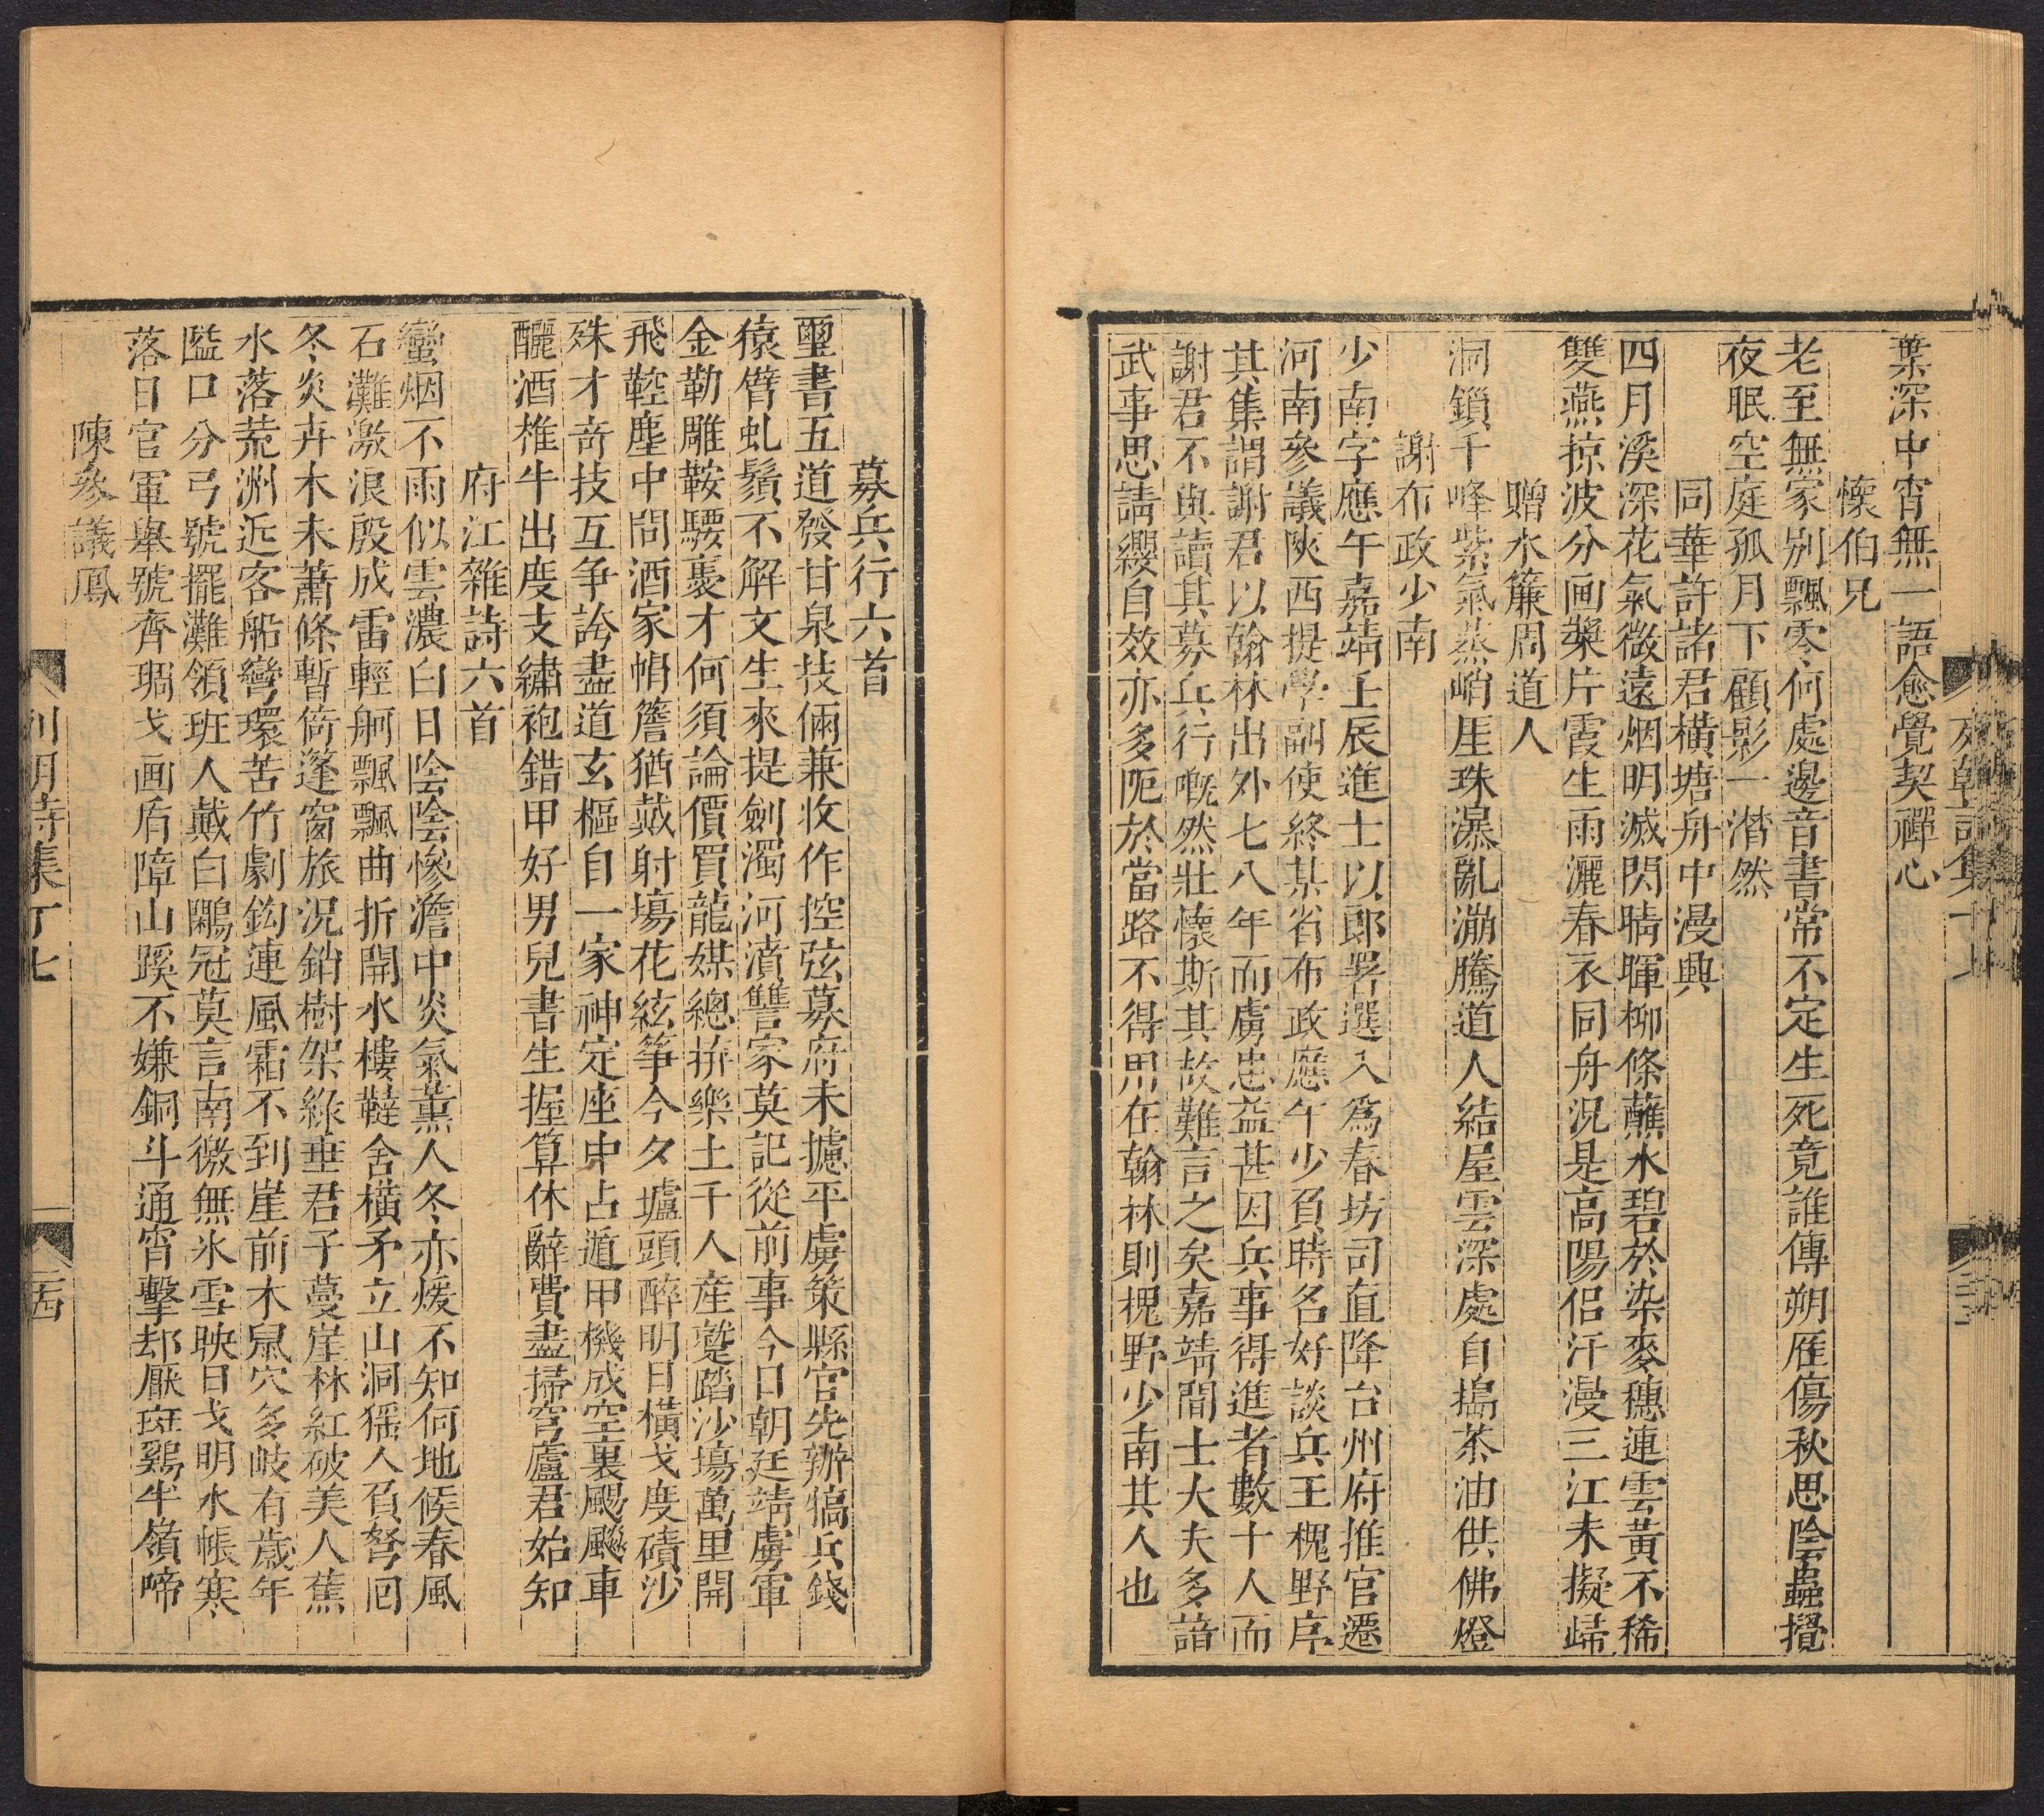 葉深中宵無一語愈覺契禪心
懷伯兄
老至無家別飄零何處邊音書常不定生死竟誰傳朔雁傷秋思陰蟲攪
夜眠空庭孤月下顧影一潸然
同華許諸君橫塘舟中漫興
四月溪深花氣微遠烟明滅閃晴暉柳條蘸水碧於染麥穗連雲黃不稀
雙燕掠波分画槳片霞生雨灑春衣同舟況是高陽侶汗漫三江未擬歸
贈水簾周道人
洞鎖千峰紫氣蒸峭厓珠瀑亂漰騰道人結屋雲深處自搗茶油供佛燈
謝布政少南
少南字應午嘉靖壬辰進士以郎署選入爲春坊司直降台州府推官遷
河南參議陝西提學副使終某省布政應午少負時名好談兵王槐野序
其集謂謝君以翰林出外七八年而虜患益甚因兵事得進者數十人而
謝君不與讀其募兵行慨然壯懷斯其故難言之矣嘉靖間士大夫多諳
武事思請纓自效亦多阨於當路不得用在翰林則槐野少南其人也
募兵行六首
璽書五道發甘泉技倆兼收作控弦募府未攄平虜策縣官先辦犒兵錢
猿臂虬鬚不解文生來提劍濁河濆讐家莫記從前事今日朝廷靖虜軍
金勒雕鞍騕褭才何須論價買龍媒總拚樂土千人産蹵踏沙塲萬里開
飛鞚塵中問酒家帩簷猶䓟射塲花絃筝今夕壚頭醉明日橫戈度磧沙
殊才竒技互争誇盡道玄樞自一家神定座中占遁甲機成空裏颺飈車
釃酒椎牛出度支繡袍錯甲好男兒書生握算休辭費盡掃穹廬君始知
府江雜詩六首
蠻烟不雨似雲濃白日陰陰慘澹中炎氣薰人冬亦煖不知何地候春風
石灘激浪殷成雷輕舸飄飄曲折開水樓韃舍橫矛立山洞猺人負弩囘
冬炎卉木未蕭條暫倚蓬窗旅況銷樹架綠垂君子蔓崖林紅破美人蕉
水落荒洲近客船彎環苦竹劇鈎連風霜不到崖前木鼠穴多岐有歳年
隘口分弓號擺灘領班人戴白鷳冠莫言南徼無氷雪映日戈明水帳寒
落日官軍舉號齊琱戈画盾障山蹊不嫌銅斗通宵擊却厭斑鷄半嶺啼
陳參議鳳
列朝詩集丁七